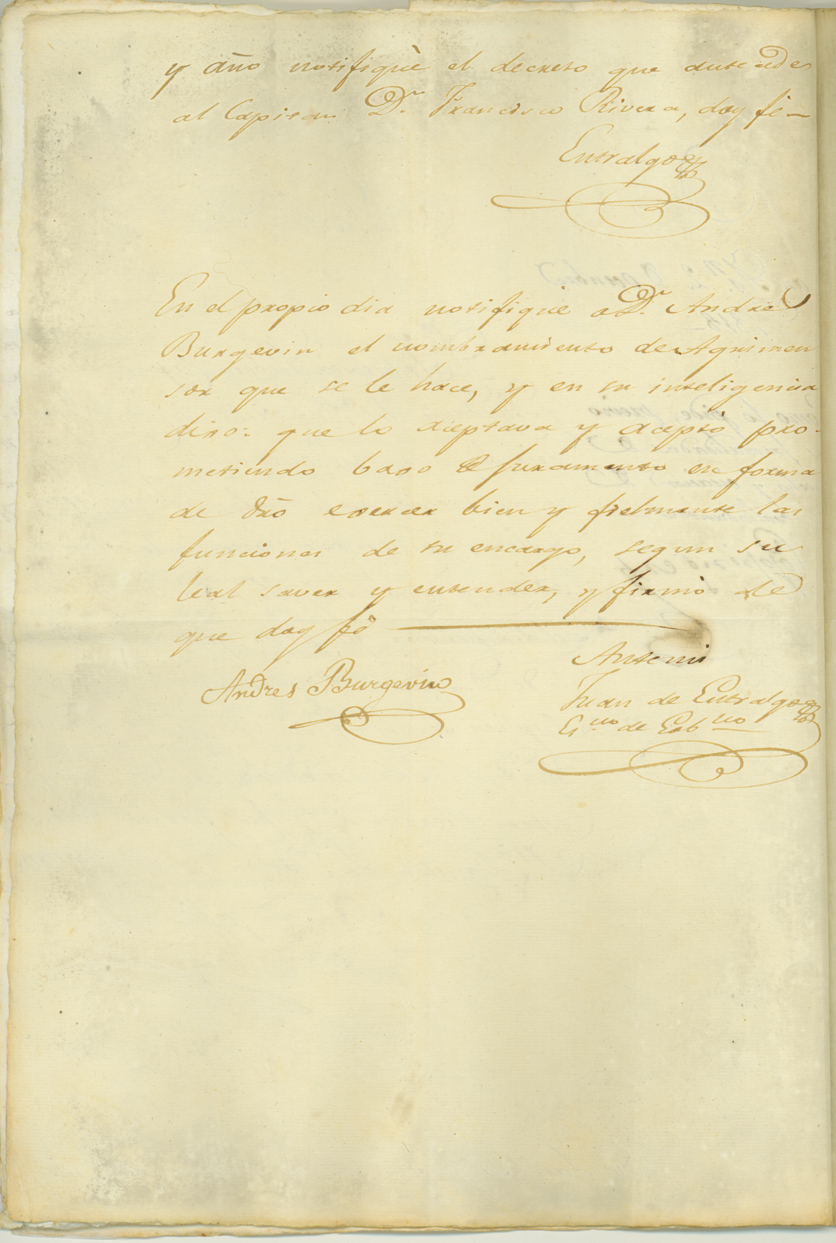 y año notifiquè el decreto que antecede
al Capitan Dn. Francisco Rivera, doy fé—
Entralgo
En el propio dia notifiqué a Dn. Andres
Burgevin el nombramiento de Agrimen
sor que se le hace, y en su inteligencia
dixo: que lo aceptava y aceptó pro-
metiendo baxo de juramento en forma
de dró exercer bien y fielmente las
funciones de su encargo, segun su
leal saver y entender, y firmó de
que doy fé
Andres Burgevin
Antemi
Juan de Entralgo
Es.no de Gob.no